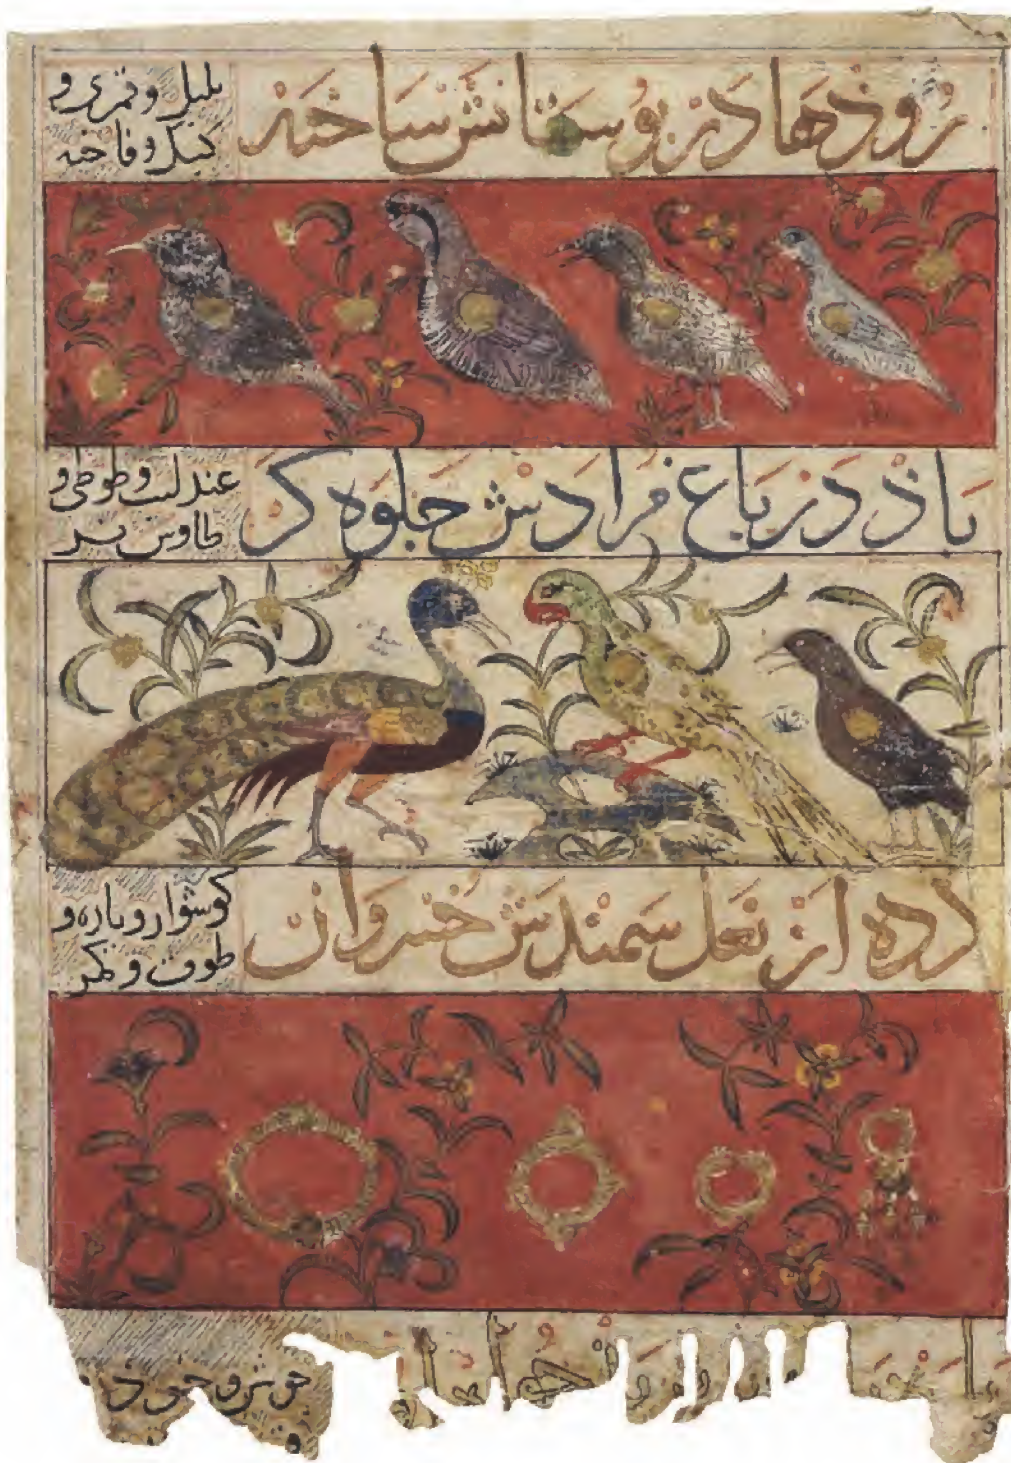 روذها در بوستانش ساخته
بلبل و قمری و
کبک و فاخته
باذ در باغ مرادش جلوه کر
عندلیب و طوطی و
طاوس نر
کرده از نعل سمندش خسروان
کوشوار و یاره و
طوق و کمر
جوشن و خود